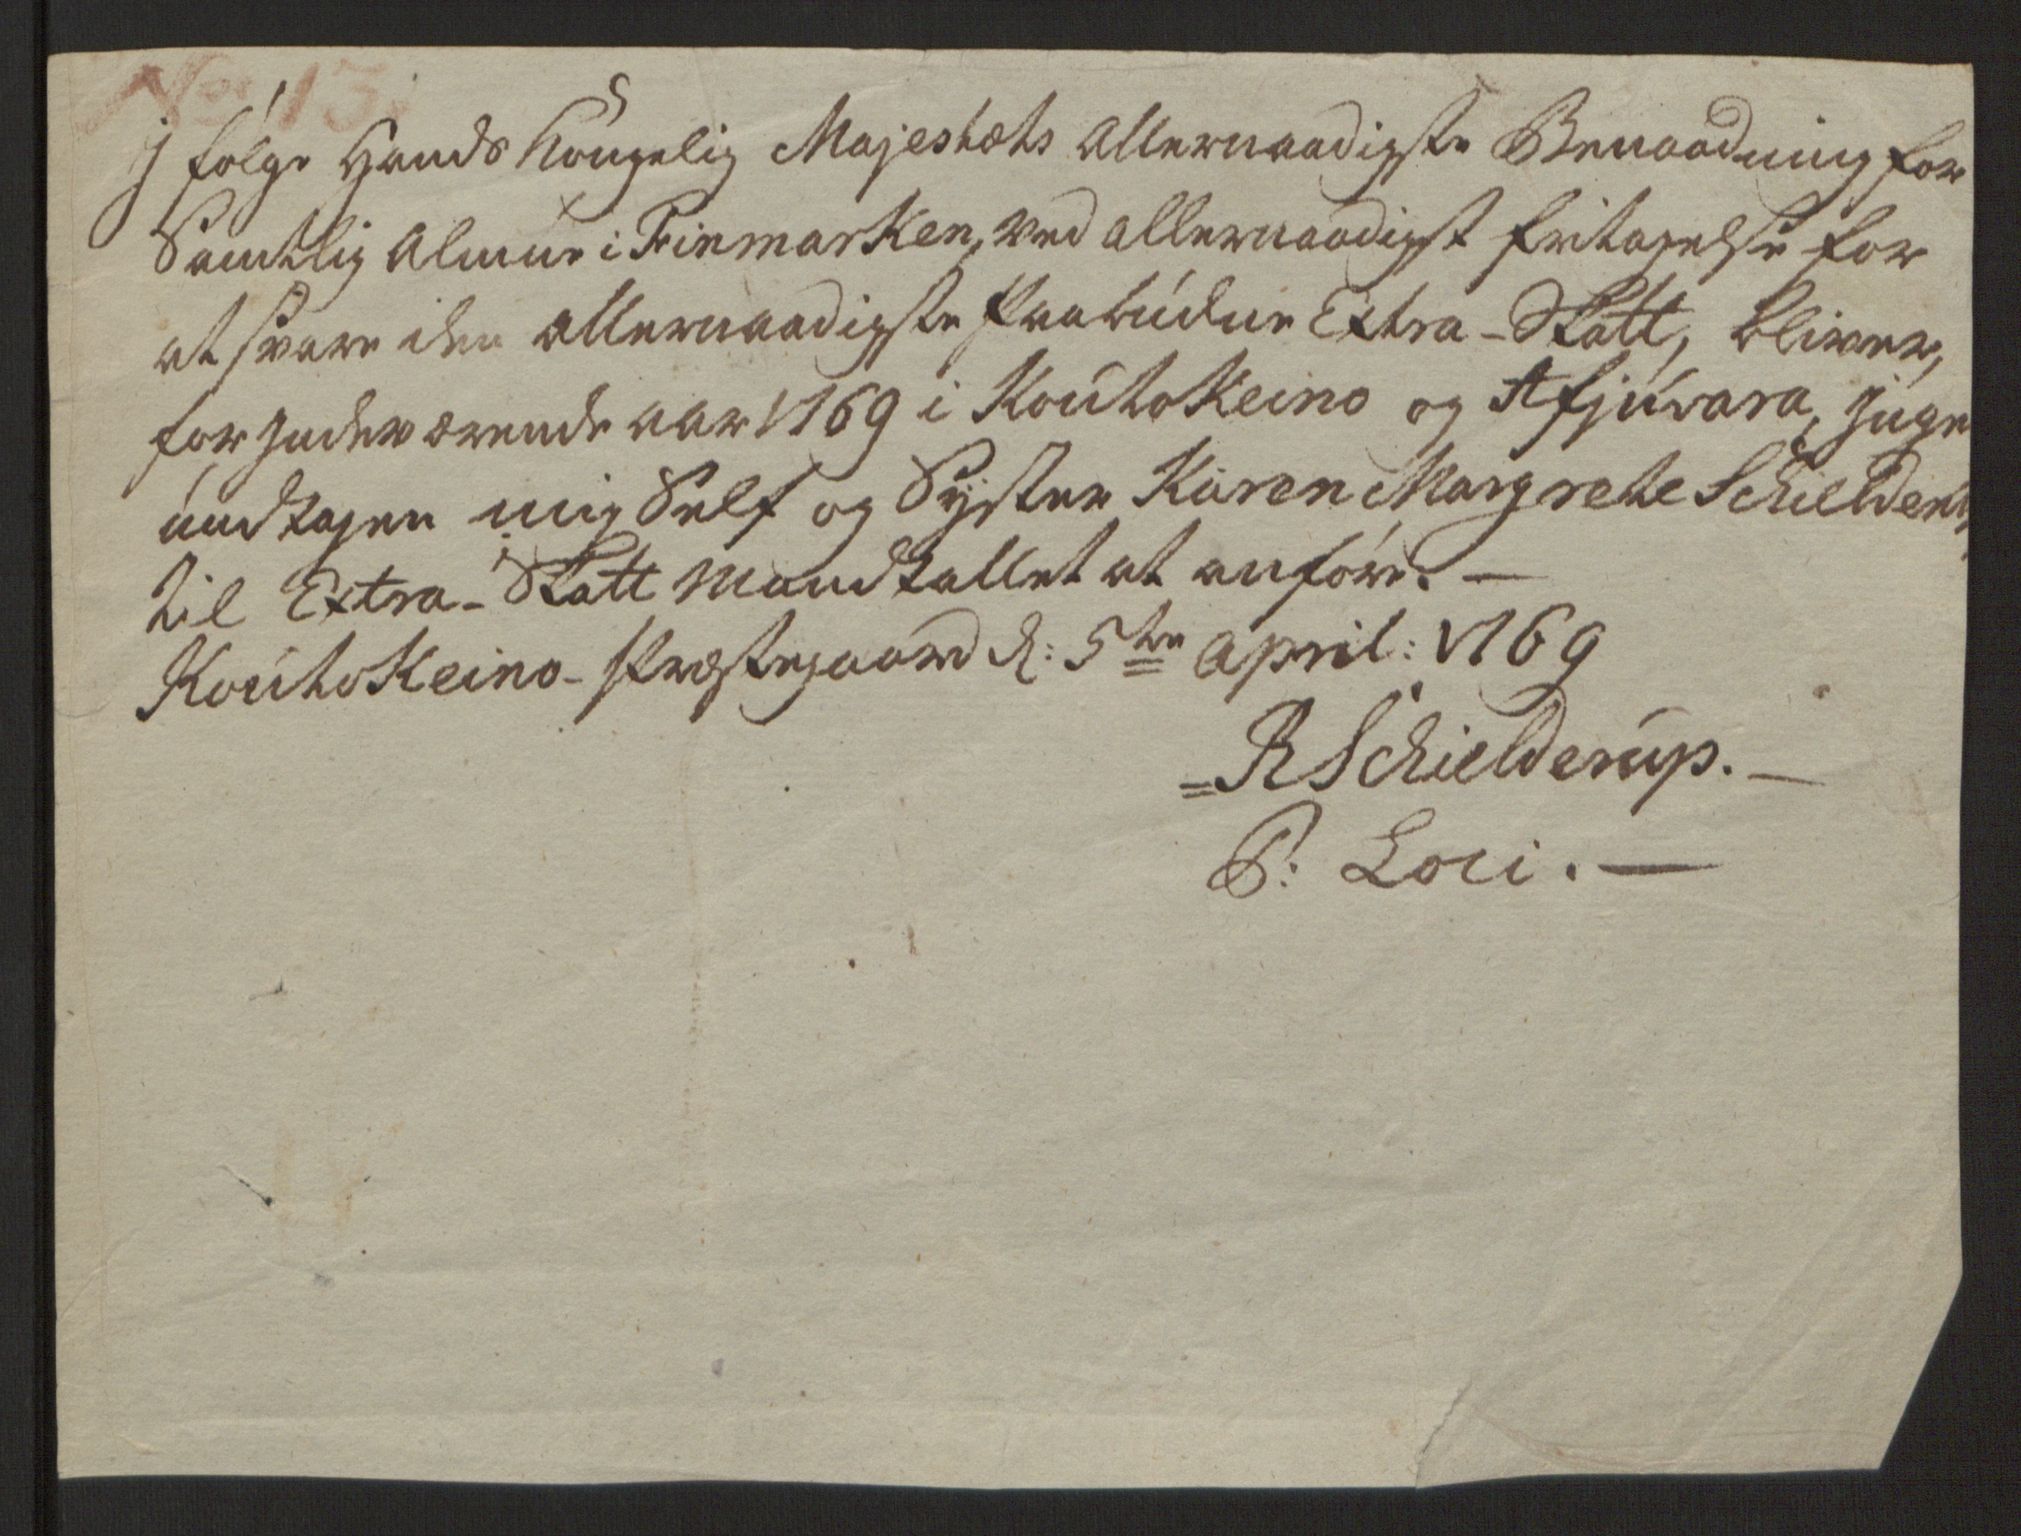 No: 13.
J fölge Hands Kongelig Majestæts Allernaadigste Benaadning for
Samtlig Almue i Finmarken, ved allernaadigst fritagelse for
at svare den allernaadigste paabudne Extra-Skatt, bliver,
for Indeværende aar 1769 i KoutoKeino og Afjúvara, Ingen
undtagen mig Self og Syster Karen Margrete Schielderup,
til Extra-Skatt Mandtallet at anföre. —
KoutoKeino-Præstegaard d: 5te April: 1769
RSchielderup. —
P: Loci. —